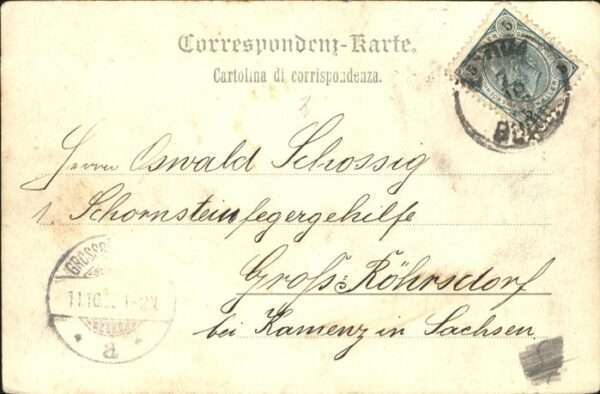 Correspondenz-Karte.
Cartolina di corrispondenza.
5
Herrn Oswald Schossig
Schornsteinfegergehilfe
Groß-Röhrsdorf
bei Kamenz in Sachsen
a